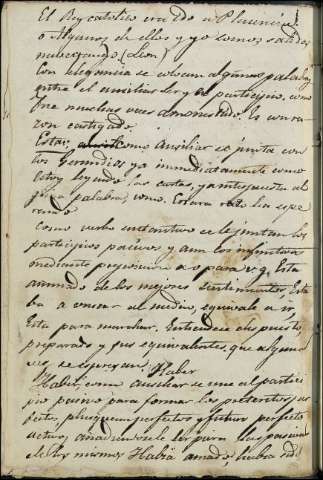 El Rey catolico era
o algunos de ellos y yo somos
(Leon)
Con elegancia se colocan algunas palabras
entre el auxiliar ser y el participio, como
Fue muchas veces amonestado. Es con ra-
zon castigado.
Estar, como Auxiliar se junta con
los gerundios ya inmediatamente como
Estoy leyendo las cartas, ya antepuesta al-
guna palabra, como. Estara
rando
Como verbo sustantivo se le juntan los
participios pasivos y aun los infinitivos
mediante preposicion a o para v. g. Esta
animado de los mejores sentimientos. Esta-
ba a comer al medio, equivale a ir
Esta para marchar. Entiendese dis-puesto,
preparado y sus equivalentes, que algunas
veces se espresan.
Haber
Haber, como auxiliar se une al partici-
pio pasivo para formar los preteritos per-
fectos, plusquam perfectos y futuro perfecto
activos, añadiendole ser para las pasivas
de los mismos. Había amado, hubo sido